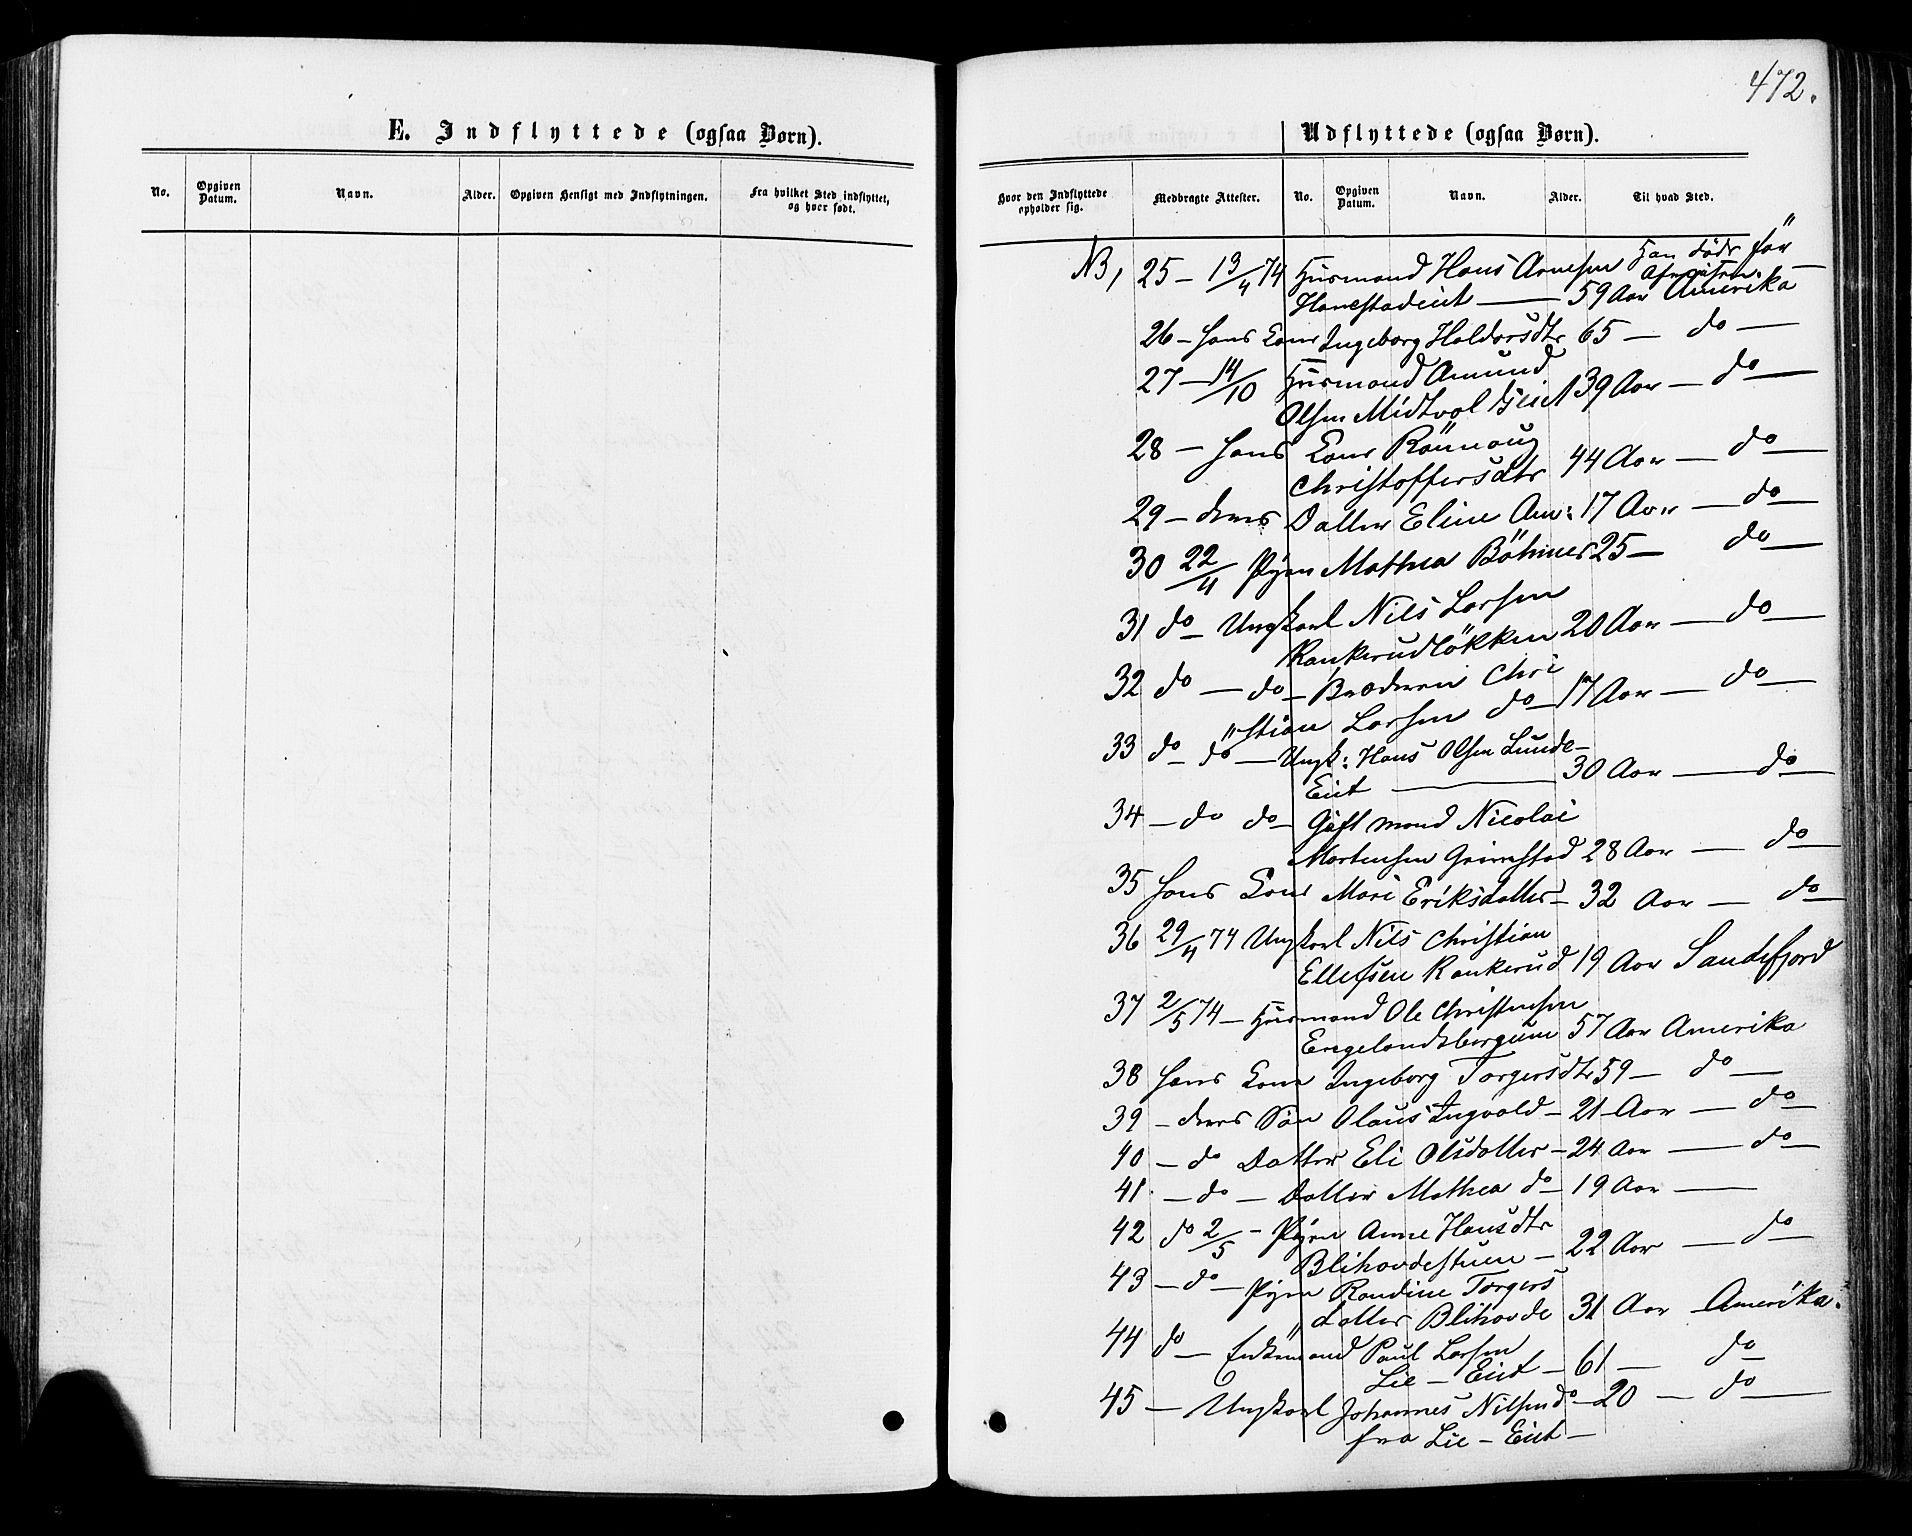 472.
E. Indflyttede (ogsaa Børn).
No.
Opgiven Datum.
Navn.
Alder.
Opgiven Hensigt med Indflytningen.
Fra hvilket Sted indflyttet, og hvor født.
Udflyttede (ogsaa Børn).
Hvor den Indflyttede opholder sig.
Medbragte Attester.
No.
Opgiven Datum.
Navn.
Alder.
Til hvad Sted.
NB, 25 – 13/4 74 Husmand Hans Arnesen Han døde før
Hanestadeiet — 59 Aar Amerika
26 – Hans Kone Ingeborg Haldorsdtr 65 – do –
27 – 14/10 Husmand Amund
Olsen Midtvol Eiet 39 Aar – do –
28 – Hans Kone Rönnaug
Christoffersdtr 44 Aar – do –
29 – deres Datter Eline Am: 17 Aar – do –
30 22/4 Pigen Mathea Böhmer 25 – do –
31 do – Ungkarl Nils Larsen
Rankerudlökken 20 Aar – do –
32 do – do – Broderen Chri
"stian Larsen do – 17 Aar – do –
33 do – do – Ungk: Hans Olsen Lunde-
Eiet — 30 Aar – do –
34 – do do – Gift mand Nicolai
Mortensen Grimestad 28 Aar – do –
35 Hans Kone Mari Eriksdatter – 32 Aar – do –
36 29/4 74 Ungkarl Nils Christian
Ellefsen Rankerud 19 Aar Sandefjord
37 2/5 74 – Husmand Ole Christensen
Engelandsbergum 57 Aar Amerika
38 Hans Kone Ingeborg Torgersdtr 59 – do –
39 – deres Søn Olaus Ingvald – 21 Aar – do –
40 – do Datter Eli Olsdatter – 24 Aar – do –
41 – do – Datter Mathea do – 19 Aar —
42 do 2/5 – Pigen Anne Hansdtr
Blihovdestuen – 22 Aar – do –
43 – do – Pigen Randine Torgers
"datter Blihovde 31 Aar – Amerika.
44 do – Enkemand Paul Larsen
Lie – Eiet – 61 – do
45 – Ungkarl Johannes Nilsen do – 20 – do –
fra Lie – Eiet –